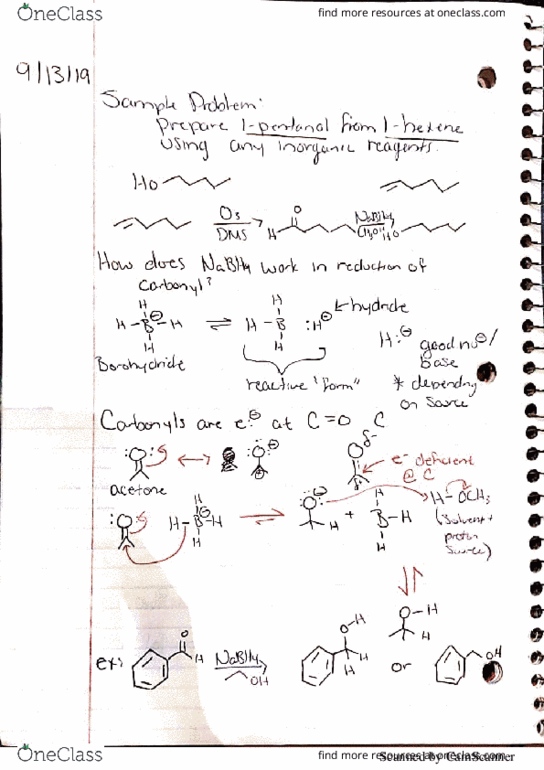 OneClass
find more resources at oneclass.com
9/13/19
Sample Problem:
Prepare 1-pentanol from 1-hexene
using any inorganic reagents.
HO
O3
DMS
H
O
NaBH4
CH3OH
HO
How does NaBH4 work in reduction of
carbonyl?
H
H-B-H
H
⊖
⇌
H
H-B
H
:H⊖
hydride
Borohydride
reactive "form"
H:⊖ good nu⊖/
base
* depending
on source
Carbonyls are e⊖ at C=O C
:O:
↔
:O:⊖
Oδ-
e- deficient
@ C
acetone
:O:
H-B-H
H
H
⊖
⇌
:O:⊖
H
+
H
B-H
H
H-OCH3
(solvent +
proton
source)
O-H
H
ex:
O
H
NaBH4
OH
O-H
H
H
or
OH
OneClass
find more resources at oneclass.com
Scanned by CamScanner